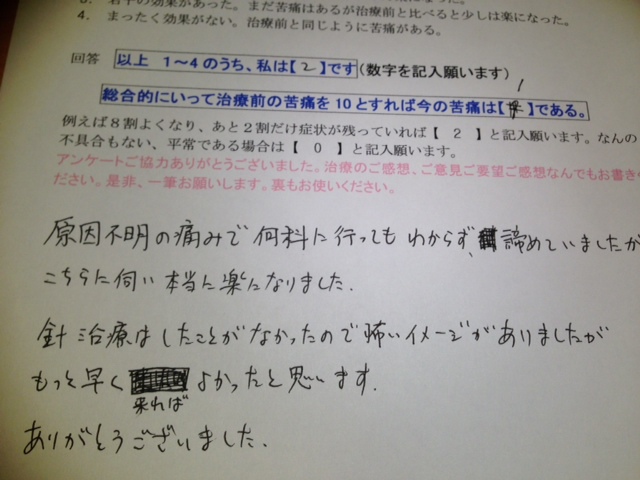 3. 若干の効果があった。まだ苦痛はあるが治療前と比べると少しは楽になった。
4. まったく効果がない。治療前と同じように苦痛がある。
回答 以上 1～4のうち、私は【 2 】です(数字を記入願います)
1
総合的にいって治療前の苦痛を10とすれば今の苦痛は【 】である。
例えば8割よくなり、あと2割だけ症状が残っていれば【 2 】と記入願います。なんの
不具合もない、平常である場合は【 0 】と記入願います。
アンケートご協力ありがとうございました。治療のご感想、ご意見ご要望ご感想なんでもお書き
ださい。是非、一筆お願いします。裏もお使いください。
原因不明の痛みで何科に行ってもわからず、諦めていましたが
こちらに伺い本当に楽になりました.
針治療はしたことがなかったので怖いイメージがありましたが
もっと早く よかったと思います.
来れば
ありがとうございました.